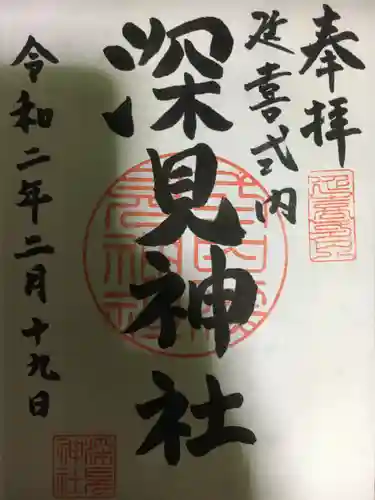 奉拝
延喜式内
深見神社
令和二年二月十九日
深見神社